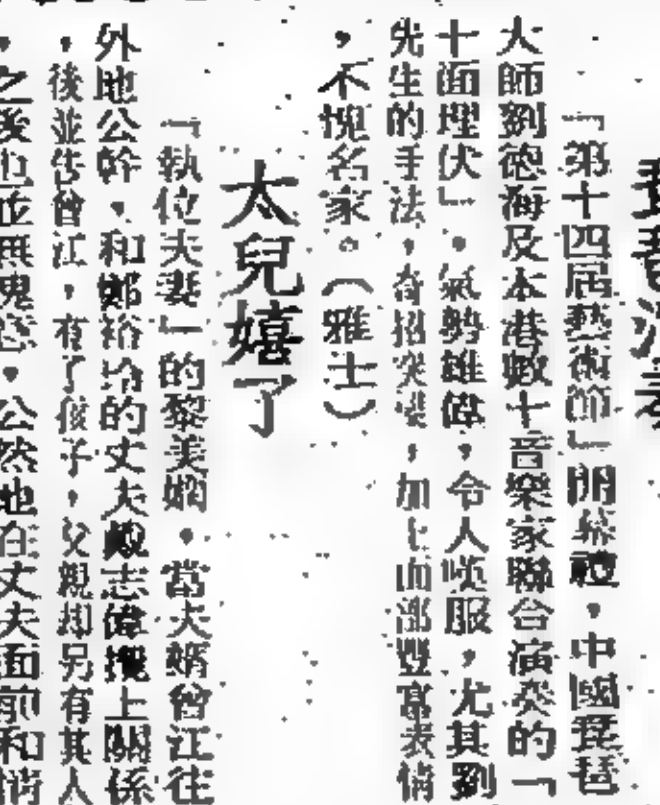 「第十四屆藝術節」開幕禮，中國琵琶
大師劉德海及本港數十音樂家聯合演奏的「
十面埋伏」，氣勢雄偉，令人嘆服，尤其劉
先生的手法，奇招突變，加上面部豐富表情
，不愧名家。（雅士）
太兒嬉了
「執位夫妻」的黎美嫻，當夫婿曾江往
外地公幹，和鄭裕玲的丈夫戚志偉攪上關係
，後並告曾江，有了孩子，父親却另有其人
，之後也並無愧意，公然地在丈夫面前和情